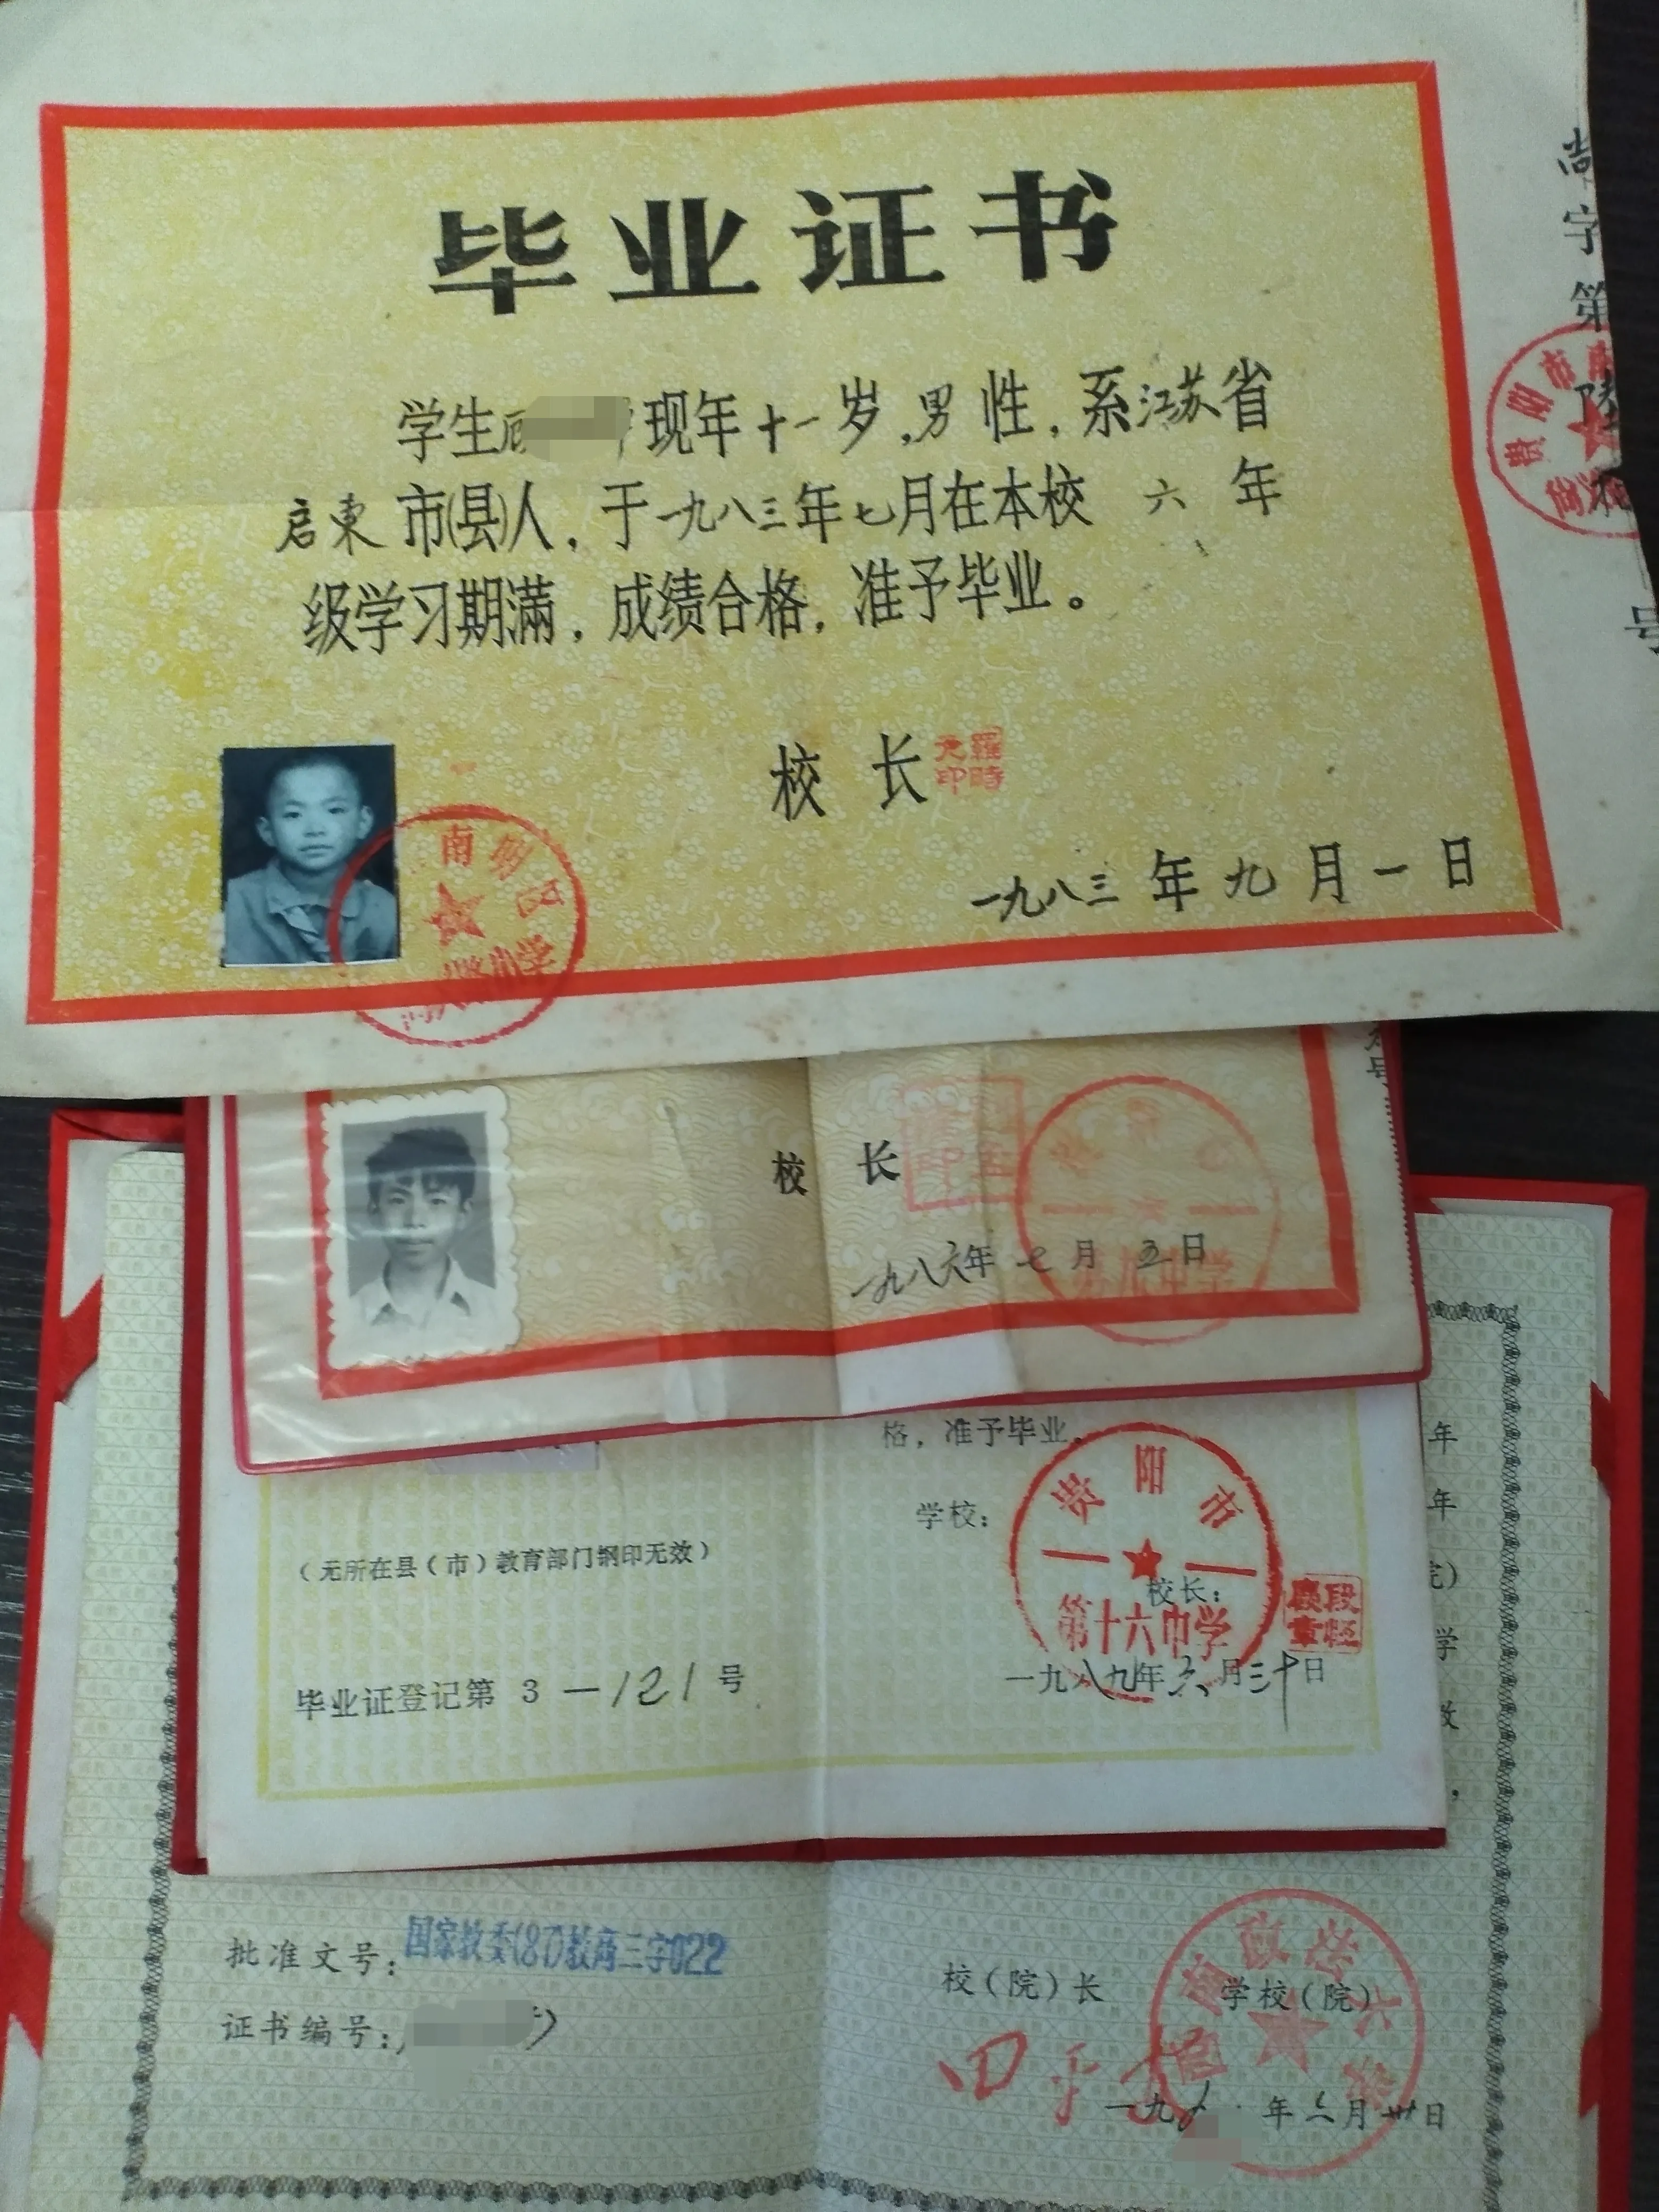 毕业证书
学生 现年十一岁，男性，系江苏省
启东市(县)人，于一九八三年七月在本校六年
级学习期满，成绩合格，准予毕业。
校长
一九八三年九月一日
南明区
小学
尚字第
号
贵阳市南
校长
一九八六年七月五日
格，准予毕业。
学校：
贵阳市
第十六中学
校长：
一九八九年六月三十日
（无所在县（市）教育部门钢印无效）
毕业证登记第 3—121号
年
年
学
批准文号：国家教委(87)教高三字022
证书编号：
校（院）长
学校（院）
一九 年六月卅日